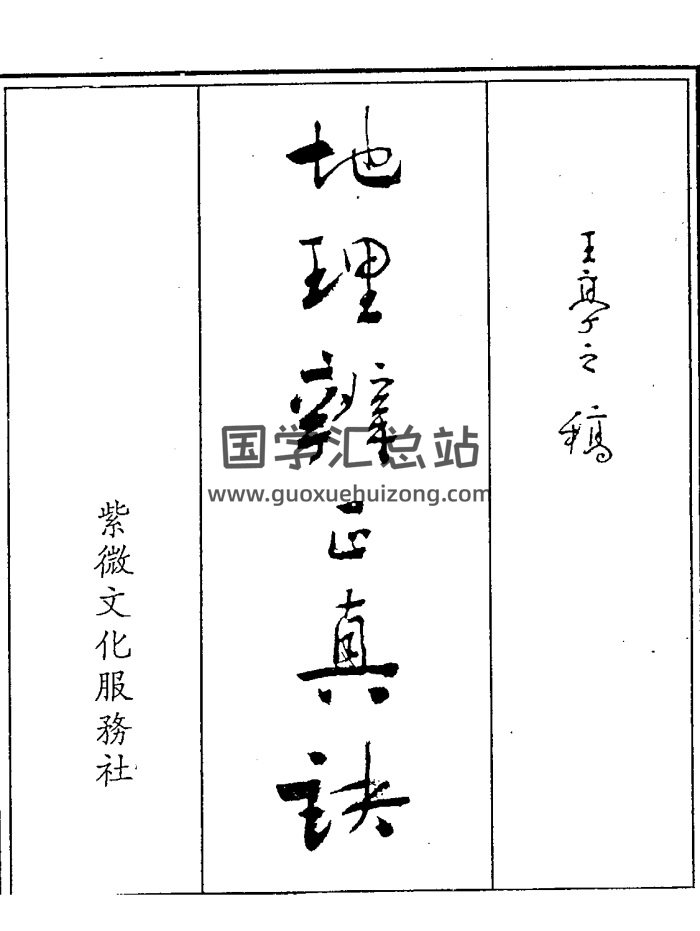 王亭之稿
地理辨正真訣
紫微文化服務社
国学汇总站
www.guoxuehuizong.com